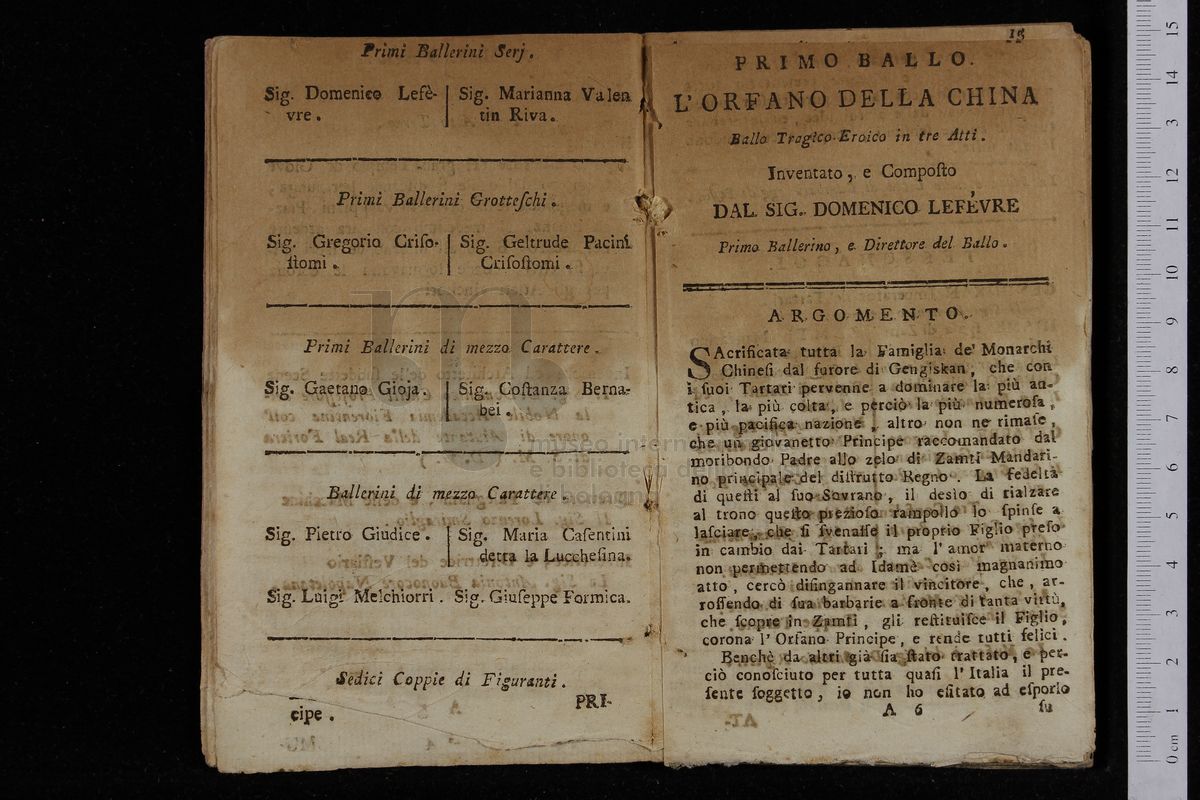 Primi Ballerini Serj.
Sig. Domenico Lefè-
vre.
Sig. Marianna Valen
tin Riva.
Primi Ballerini Grotteſchi.
Sig. Gregorio Criſo-
ſtomi.
Sig. Geltrude Pacini
Criſoſtomi.
Primi Ballerini di mezzo Carattere.
Sig. Gaetano Gioja.
Sig. Coſtanza Berna-
bei.
Ballerini di mezzo Carattere.
Sig. Pietro Giudice.
Sig. Maria Caſentini
detta la Luccheſina.
Sig. Luigi Melchiorri. Sig. Giuſeppe Formica.
Sedici Coppie di Figuranti.
cipe.
PRI-
PRIMO BALLO.
L'ORFANO DELLA CHINA
Ballo Tragico-Eroico in tre Atti.
Inventato, e Compoſto
DAL SIG. DOMENICO LEFÉVRE
Primo Ballerino, e Direttore del Ballo.
ARGOMENTO.
SAcrificata tutta la Famiglia de' Monarchi
Chineſi dal furore di Gengiskan, che con
i ſuoi Tartari pervenne a dominare la più an-
tica, la più colta, e perciò la più numeroſa,
e più pacifica nazione, altro non ne rimaſe,
che un giovanetto Principe raccomandato dal
moribondo Padre allo zelo di Zamti Mandari-
no principale del diſtrutto Regno. La fedeltà
di queſti al ſuo Sovrano, il desìo di rialzare
al trono queſto prezioſo rampollo lo ſpinſe a
laſciare, che ſi ſvenaſſe il proprio Figlio preſo
in cambio dai Tartari; ma l'amor materno
non permettendo ad Idamè così magnanimo
atto, cercò diſingannare il vincitore, che, ar-
roſſendo di ſua barbarie a fronte di tanta virtù,
che ſcopre in Zamti, gli reſtituiſce il Figlio,
corona l'Orfano Principe, e rende tutti felici.
Benchè da altri già ſia ſtato trattato, e per-
ciò conoſciuto per tutta quaſi l'Italia il pre-
ſente ſoggetto, io non ho eſitato ad eſporlo
A 6
ſu